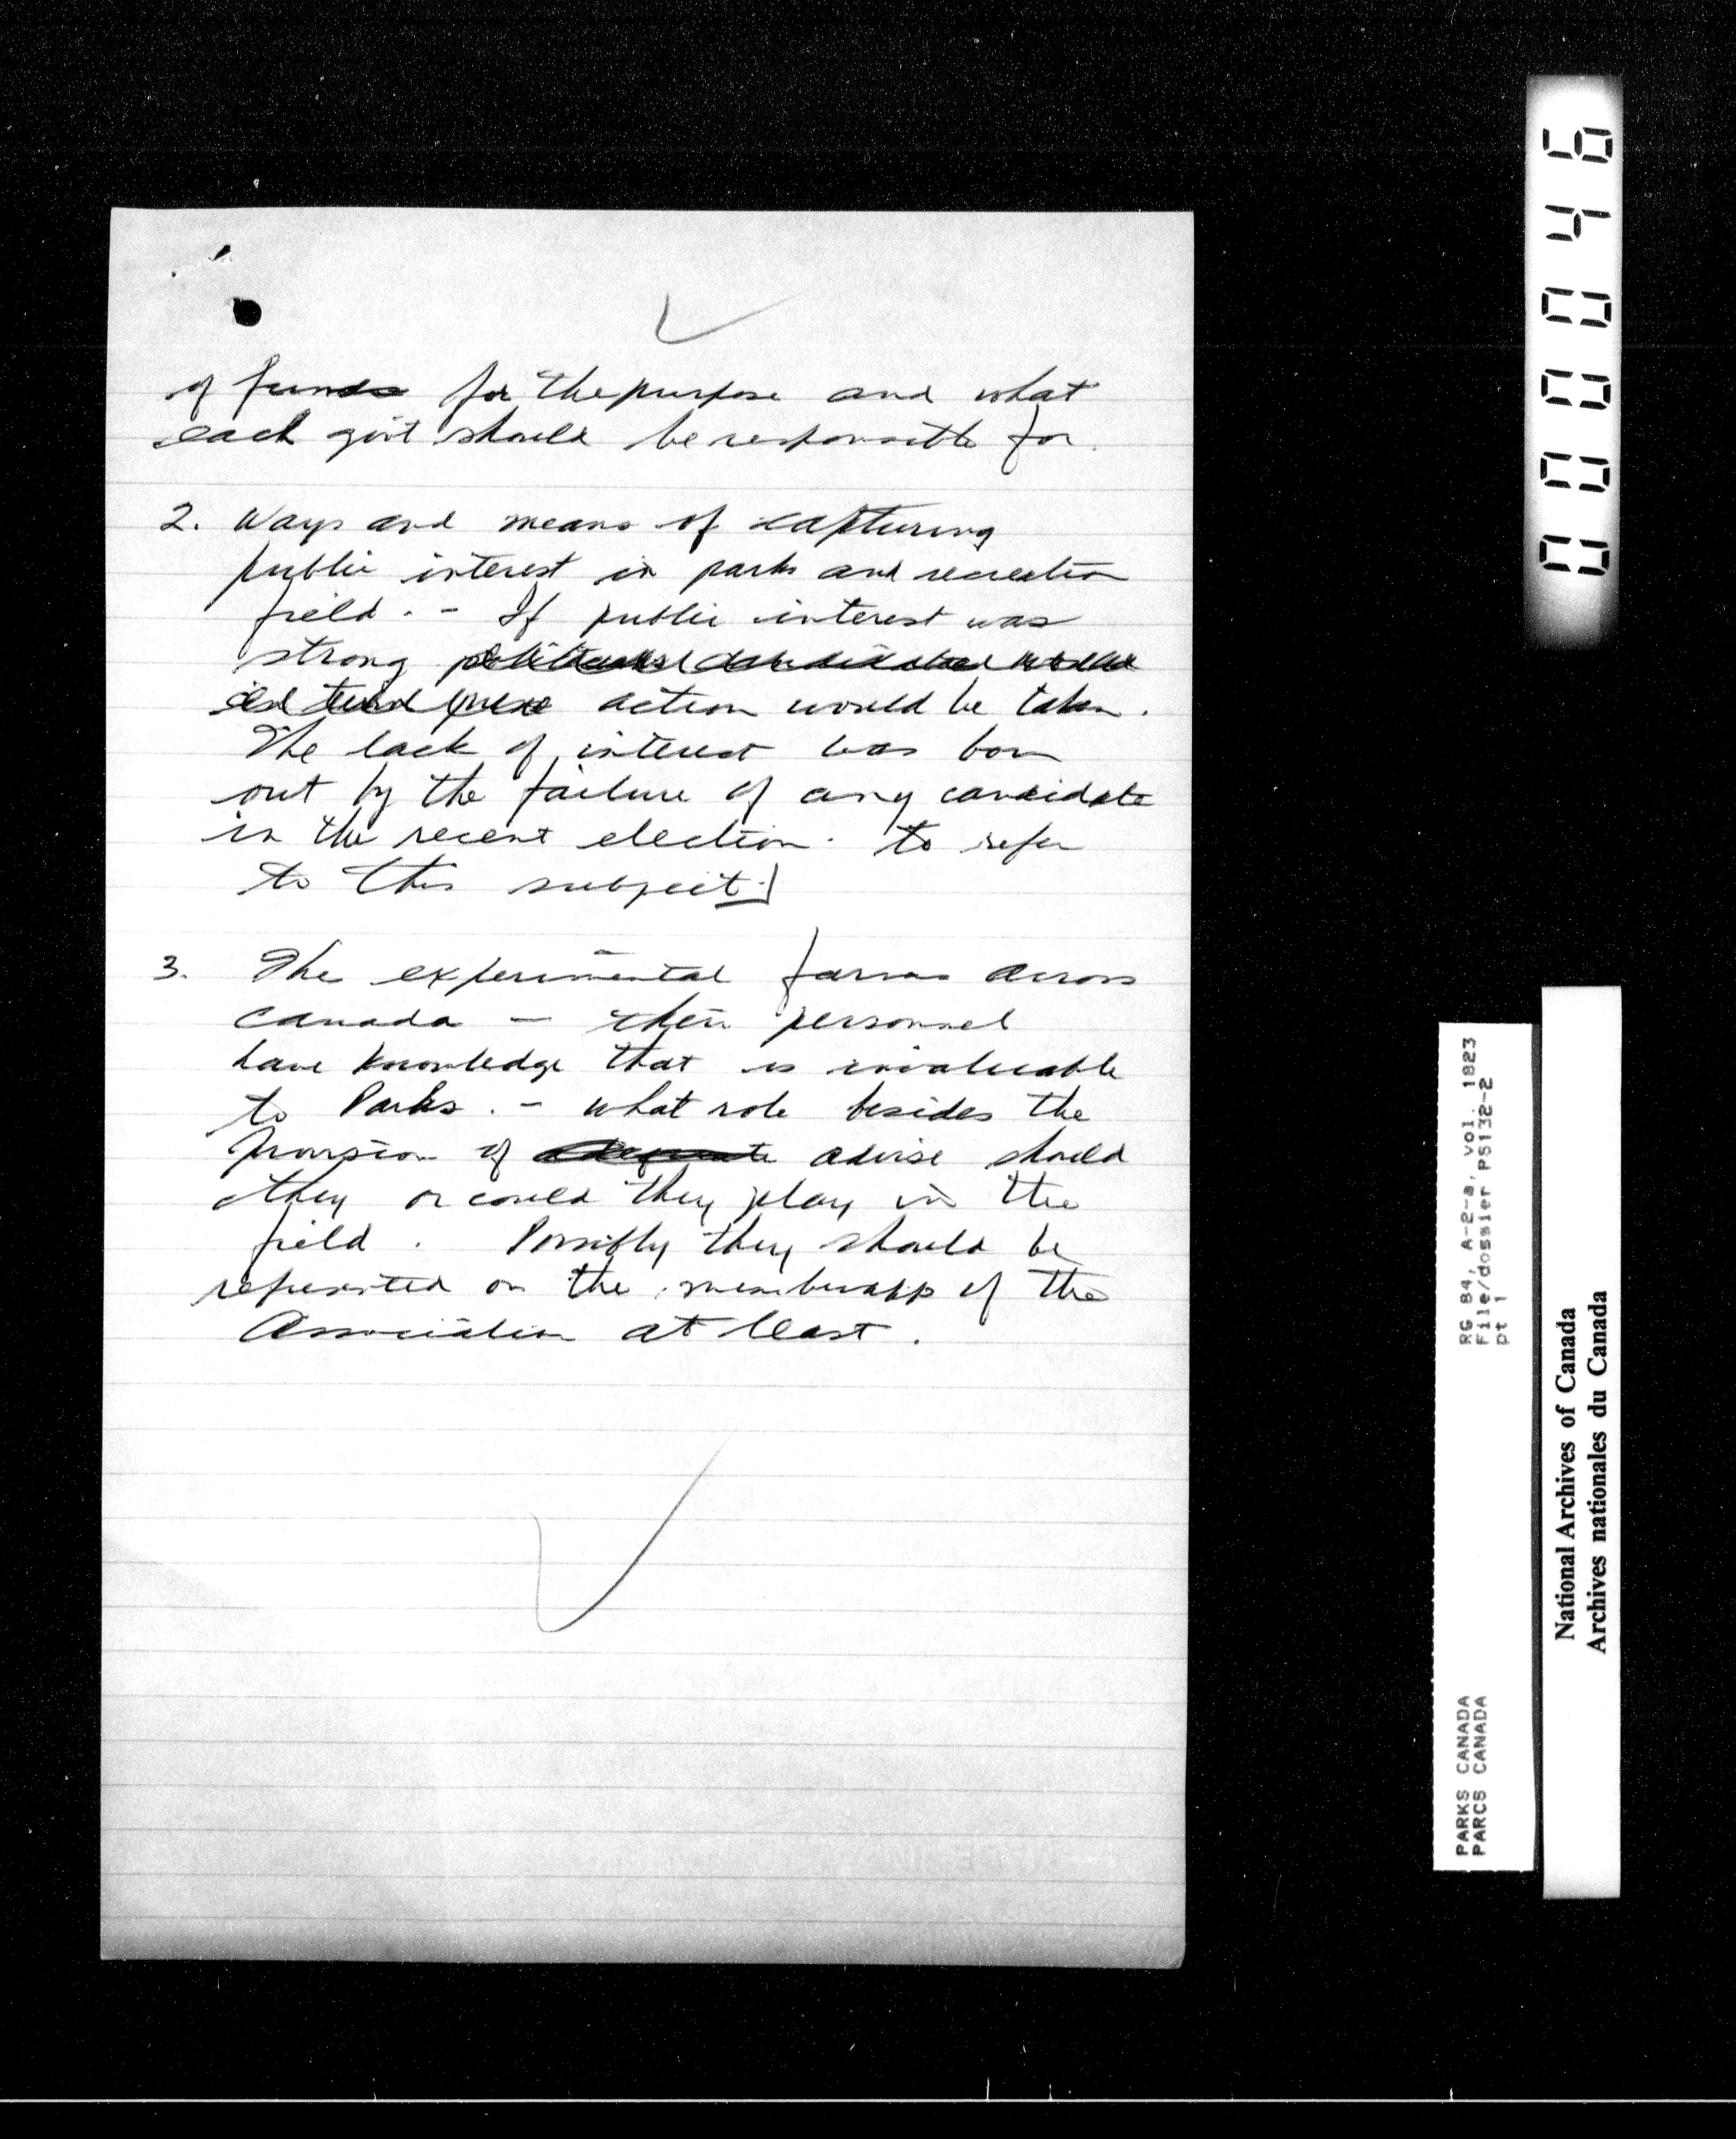 of funds for the purpose and what
each gov't should be responsible for.
2. Ways and means of capturing
public interest in parks and recreation
field. - If public interest was
strong political candidates would
action would be taken.
The lack of interest was born
out by the failure of any candidate
in the recent election. to refer
to this subject.]
3. The experimental farms across
Canada - their personnel
have knowledge that is invaluable
to Parks. - what role besides the
provision of adequate advise should
they or could they play in the
field. Possibly they should be
represented on the membership of the
Association at least.
000046
RG 84, A-2-a, vol. 1823
File/dossier PS132-2
pt 1
PARKS CANADA
PARCS CANADA
National Archives of Canada
Archives nationales du Canada